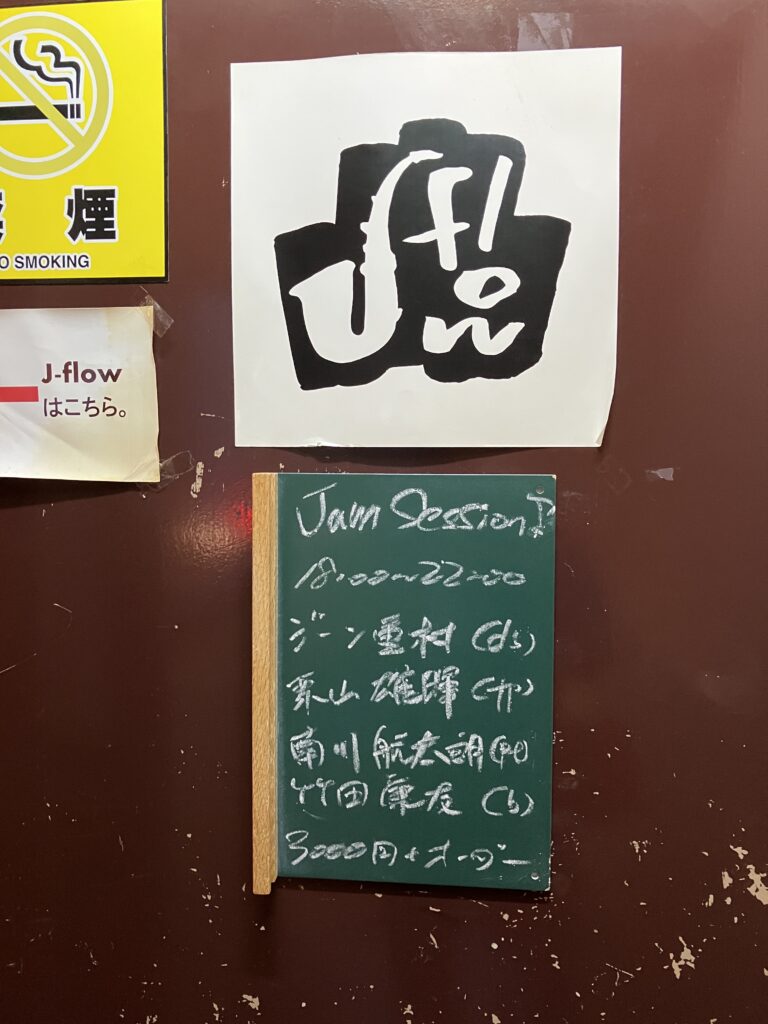 煙
NO SMOKING
J-flow
はこちら。
J flow
Jam Session
18:00~22:00
ジーン重村(ds)
栗山 雄暉
南川 航太朗(pf)
竹田 康友 (b)
3000円+オーダー